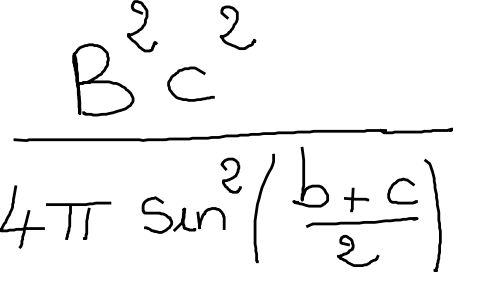 B²c²
4π sin²(b+c/2)